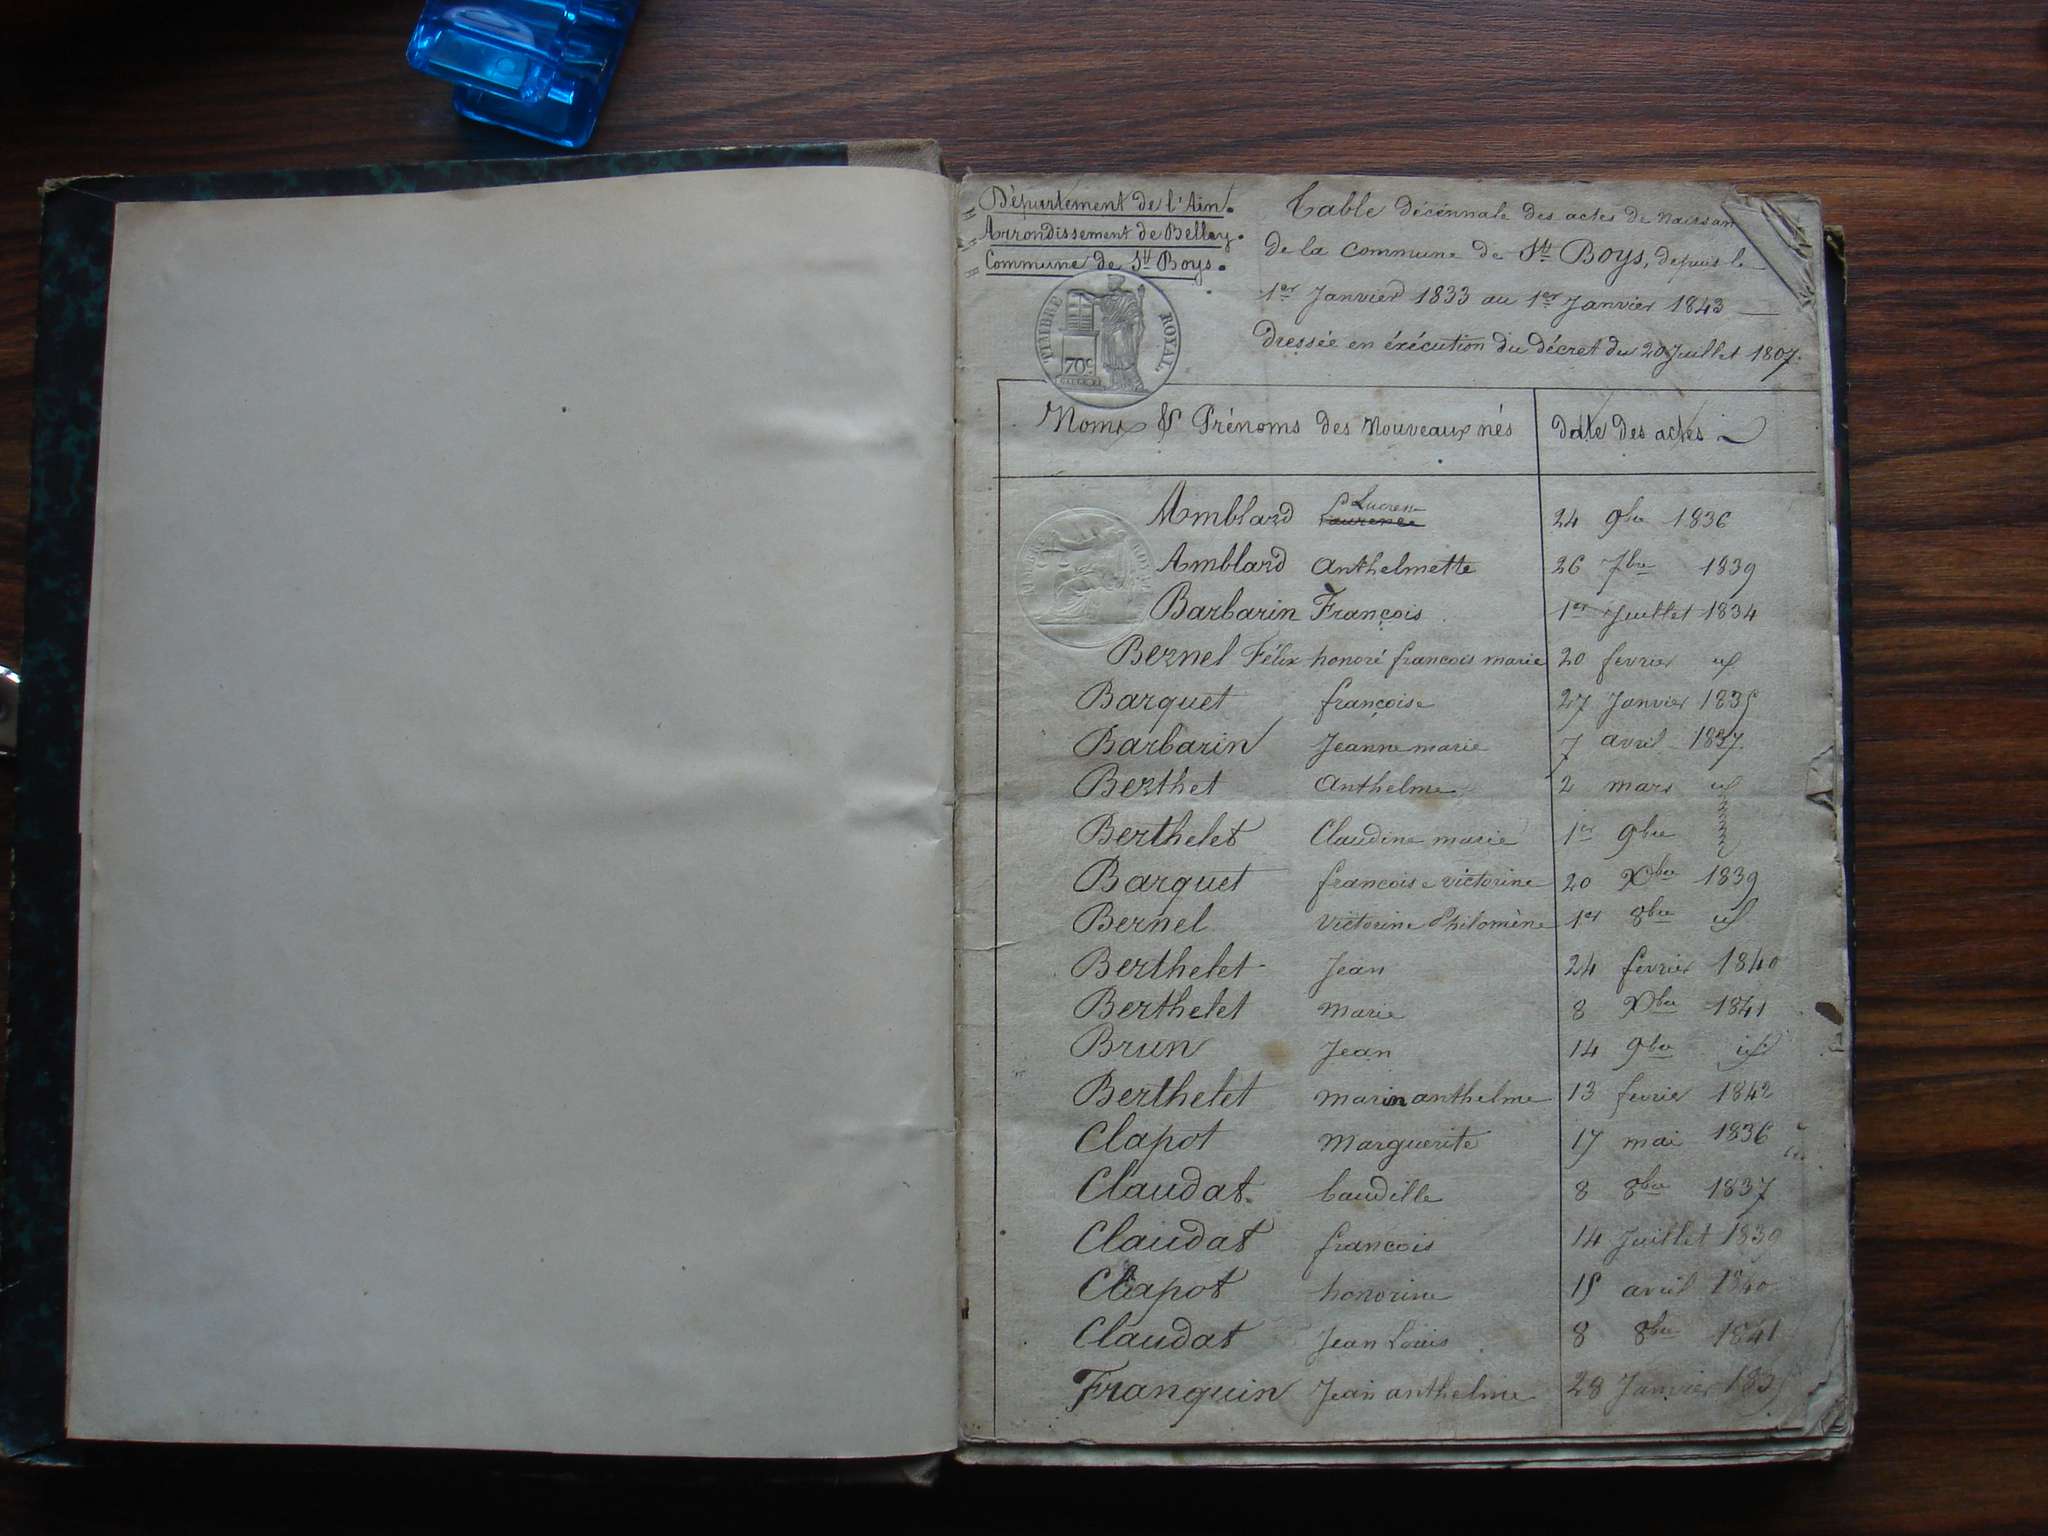 Département de l'Ain.
Arrondissement de Belley.
Commune de St Boys.
Table décénnale des actes de Naissan
de la commune de St Boys, depuis le
1er Janvier 1833 au 1er Janvier 1843
dressée en éxécution du décret du 20 Juillet 1807.
TIMBRE ROYAL
70c
Noms & Prénoms des Nouveaux nés date des actes
Amblard Laurence 24 9bre 1836
Amblard Anthelmette 26 7bre 1839
Barbarin François 1er Juillet 1834
Bernel Félix honoré francois marie 20 fevrier id
Barquet françoise 27 Janvier 1835
Barbarin Jeanne marie 7 avril 1837
Berthet Anthelme 2 mars id
Berthelet Claudine marie 1er 9bre id
Barquet francoise victorine 20 Xbre 1839
Bernel Victorine Philomène 1er 8bre id
Berthelet Jean 24 fevrier 1840
Berthelet Marie 8 Xbre 1841
Brun Jean 14 9bre id
Berthelet marin anthelme 13 fevrier 1842
Clapot Marguerite 17 mai 1836
Claudat baudille 8 8bre 1837
Claudat francois 14 Juillet 1839
Clapot honorine 15 avril 1840
Claudat Jean Louis 8 8bre 1841
Franquin Jean anthelme 28 Janvier 1835